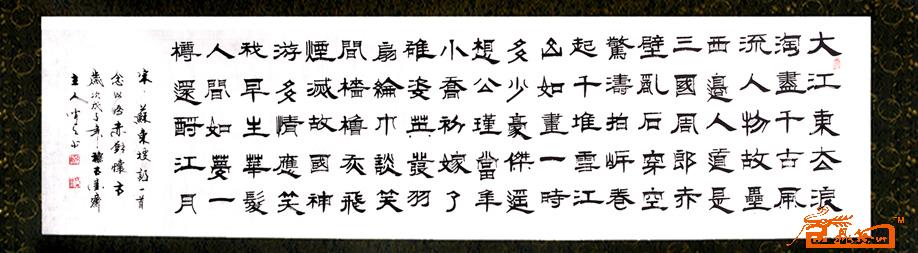 大江東去浪
淘盡千古風
流人物故壘
西邊人道是
三國周郎赤
壁亂石穿空
驚濤拍岍卷
起千堆雪江
山如畫一時
多少豪傑遥
想公瑾當年
小喬初嫁了
雄姿英發羽
扇綸巾談笑
間檣櫓灰飛
煙滅故國神
游多情應笑
我早生華髮
人間如夢一
樽還酹江月
宋·蘇東坡詞一首
念奴嬌赤壁懷古
歲次戊子年
主人